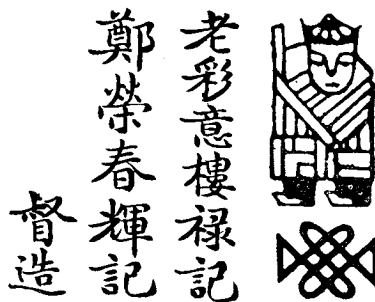 老彩意樓祿記
鄭榮春輝記
督造